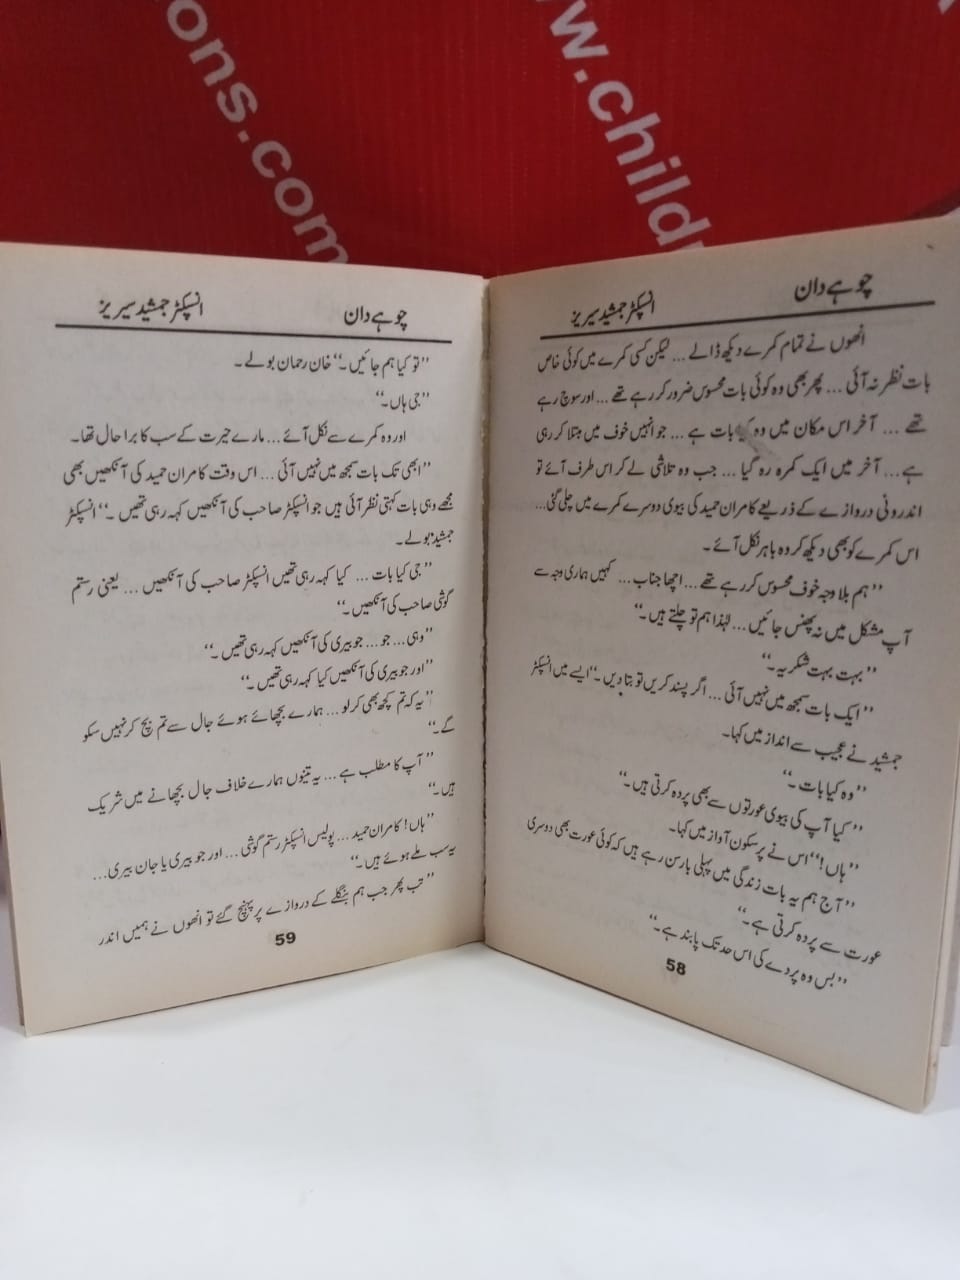 ons.com
w.childr
چوہے دان
انسپکٹر جمشید سیریز
انھوں نے تمام کمرے دیکھ ڈالے ... لیکن کسی کمرے میں کوئی خاص
بات نظر نہ آئی ... پھر بھی وہ کوئی بات محسوس ضرور کر رہے تھے ... اور سوچ رہے
تھے ... آخر اس مکان میں وہ کیا بات ہے ... جو انہیں خوف میں مبتلا کر رہی
ہے ... آخر میں ایک کمرہ رہ گیا ... جب وہ تلاشی لے کر اس طرف آئے تو
اندرونی دروازے کے ذریعے کامران حمید کی بیوی دوسرے کمرے میں چلی گئی ...
اس کمرے کو بھی دیکھ کر وہ باہر نکل آئے۔
’’ہم بلاوجہ خوف محسوس کر رہے تھے ... اچھا جناب ... کہیں ہماری وجہ سے
آپ مشکل میں نہ پھنس جائیں ... لہٰذا ہم تو چلتے ہیں۔‘‘
’’بہت بہت شکریہ۔‘‘
’’ایک بات سمجھ میں نہیں آئی ... اگر پسند کریں تو بتا دیں۔‘‘ ایسے میں انسپکٹر
جمشید نے عجیب سے انداز میں کہا۔
’’وہ کیا بات۔‘‘
’’کیا آپ کی بیوی عورتوں سے بھی پردہ کرتی ہیں۔‘‘
’’ہاں!‘‘ اس نے پرسکون آواز میں کہا۔
’’آج ہم یہ بات زندگی میں پہلی بار سن رہے ہیں کہ کوئی عورت بھی دوسری
عورت سے پردہ کرتی ہے۔‘‘
’’بس وہ پردے کی اس حد تک پابند ہے۔‘‘
58
چوہے دان
انسپکٹر جمشید سیریز
’’تو کیا ہم جائیں۔‘‘ خان رحمان بولے۔
’’جی ہاں۔‘‘
اور وہ کمرے سے نکل آئے ... مارے حیرت کے سب کا برا حال تھا۔
’’ابھی تک بات سمجھ میں نہیں آئی ... اس وقت کامران حمید کی آنکھیں بھی
مجھے وہی بات کہتی نظر آئی ہیں جو انسپکٹر صاحب کی آنکھیں کہہ رہی تھیں۔‘‘ انسپکٹر
جمشید بولے۔
’’جی کیا بات ... کیا کہہ رہی تھیں انسپکٹر صاحب کی آنکھیں ... یعنی رستم
گوشی صاحب کی آنکھیں۔‘‘
’’وہی ... جو ... جو بیری کی آنکھیں کہہ رہی تھیں۔‘‘
’’اور جو بیری کی آنکھیں کیا کہہ رہی تھیں۔‘‘
’’یہ کہ تم کچھ بھی کر لو ... ہمارے بچھائے ہوئے جال سے تم بچ کر نہیں سکو
گے۔‘‘
’’آپ کا مطلب ہے ... یہ تینوں ہمارے خلاف جال بچھانے میں شریک
ہیں۔‘‘
’’ہاں! کامران حمید ... پولیس انسپکٹر رستم گوشی ... اور جو بیری یا جان بیری ...
یہ سب ملے ہوئے ہیں۔‘‘
’’تب پھر جب ہم بنگلے کے دروازے پر پہنچ گئے تو انھوں نے ہمیں اندر
59